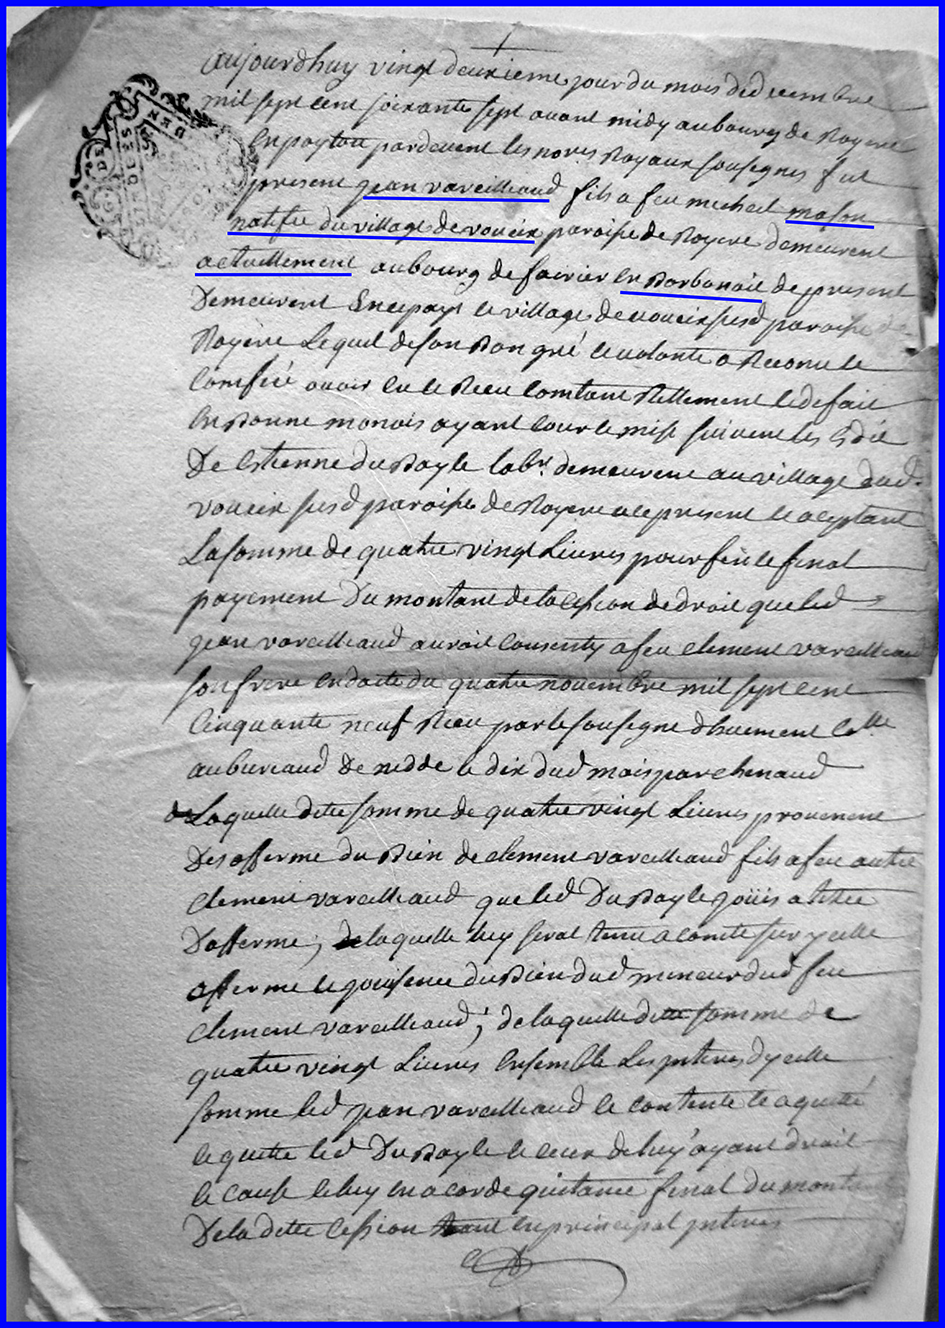 aujourdhuy vingt deuxieme jour du mois de decembre
mil sept cent soixante sept avant midy au bourg de Royere
en poytou pardevent les nores Royaux sousegnes fut
present jean vareilleaud fils a feu micheil mason
natife du village de voucix paroisse de Royere demeurent
actuellement au bourg de favrier en Borbonois de present
Demeurent en ce pays le village de voucix susd paroisse de
Royere Lequel de son Bon gré et volonte a Reconu et
Confié avoir eu et Receu Comtant Rellement et de fait
En Bonne monois ayant Cour et mise suivent les Edit
De Estienne du Bayle labr. demeurent au village dud.
voucix susd paroisse de Royere a ce present et aceptant
La somme de quatre vingt Livres pour fein et final
payement Du montant de la Cession de droit que led
jean vareilleaud auroit Consenty a feu clement vareilleaud
son frere en date du quatre novembre mil sept cent
Cinquante neuf Receu par le sousegne dhuement Collé
au bureaud De nedde le dix dud mois par chenaud
de Laquelle ditte somme de quatre vingt Livres provenent
Des afferme du Bien de clement vareilleaud fils a feu autre
Clement vareilleaud que led Du Bayle joüis a titre
D'afferme ; de laquelle luy serat tenu a comte sur ycelle
afferme et jouisence du Bien dud meneur dud feu
clement vareilleaud ; de laquelle ditte somme de
quatre vingt Livres Ensemble Les interes dycelle
somme led jean vareilleaud se contente et a quitté
et quitte led Du Bayle et ceux de luy ayant droit
et cause et luy en acorde quitance final du montant
De la ditte Cession tant en principal interes